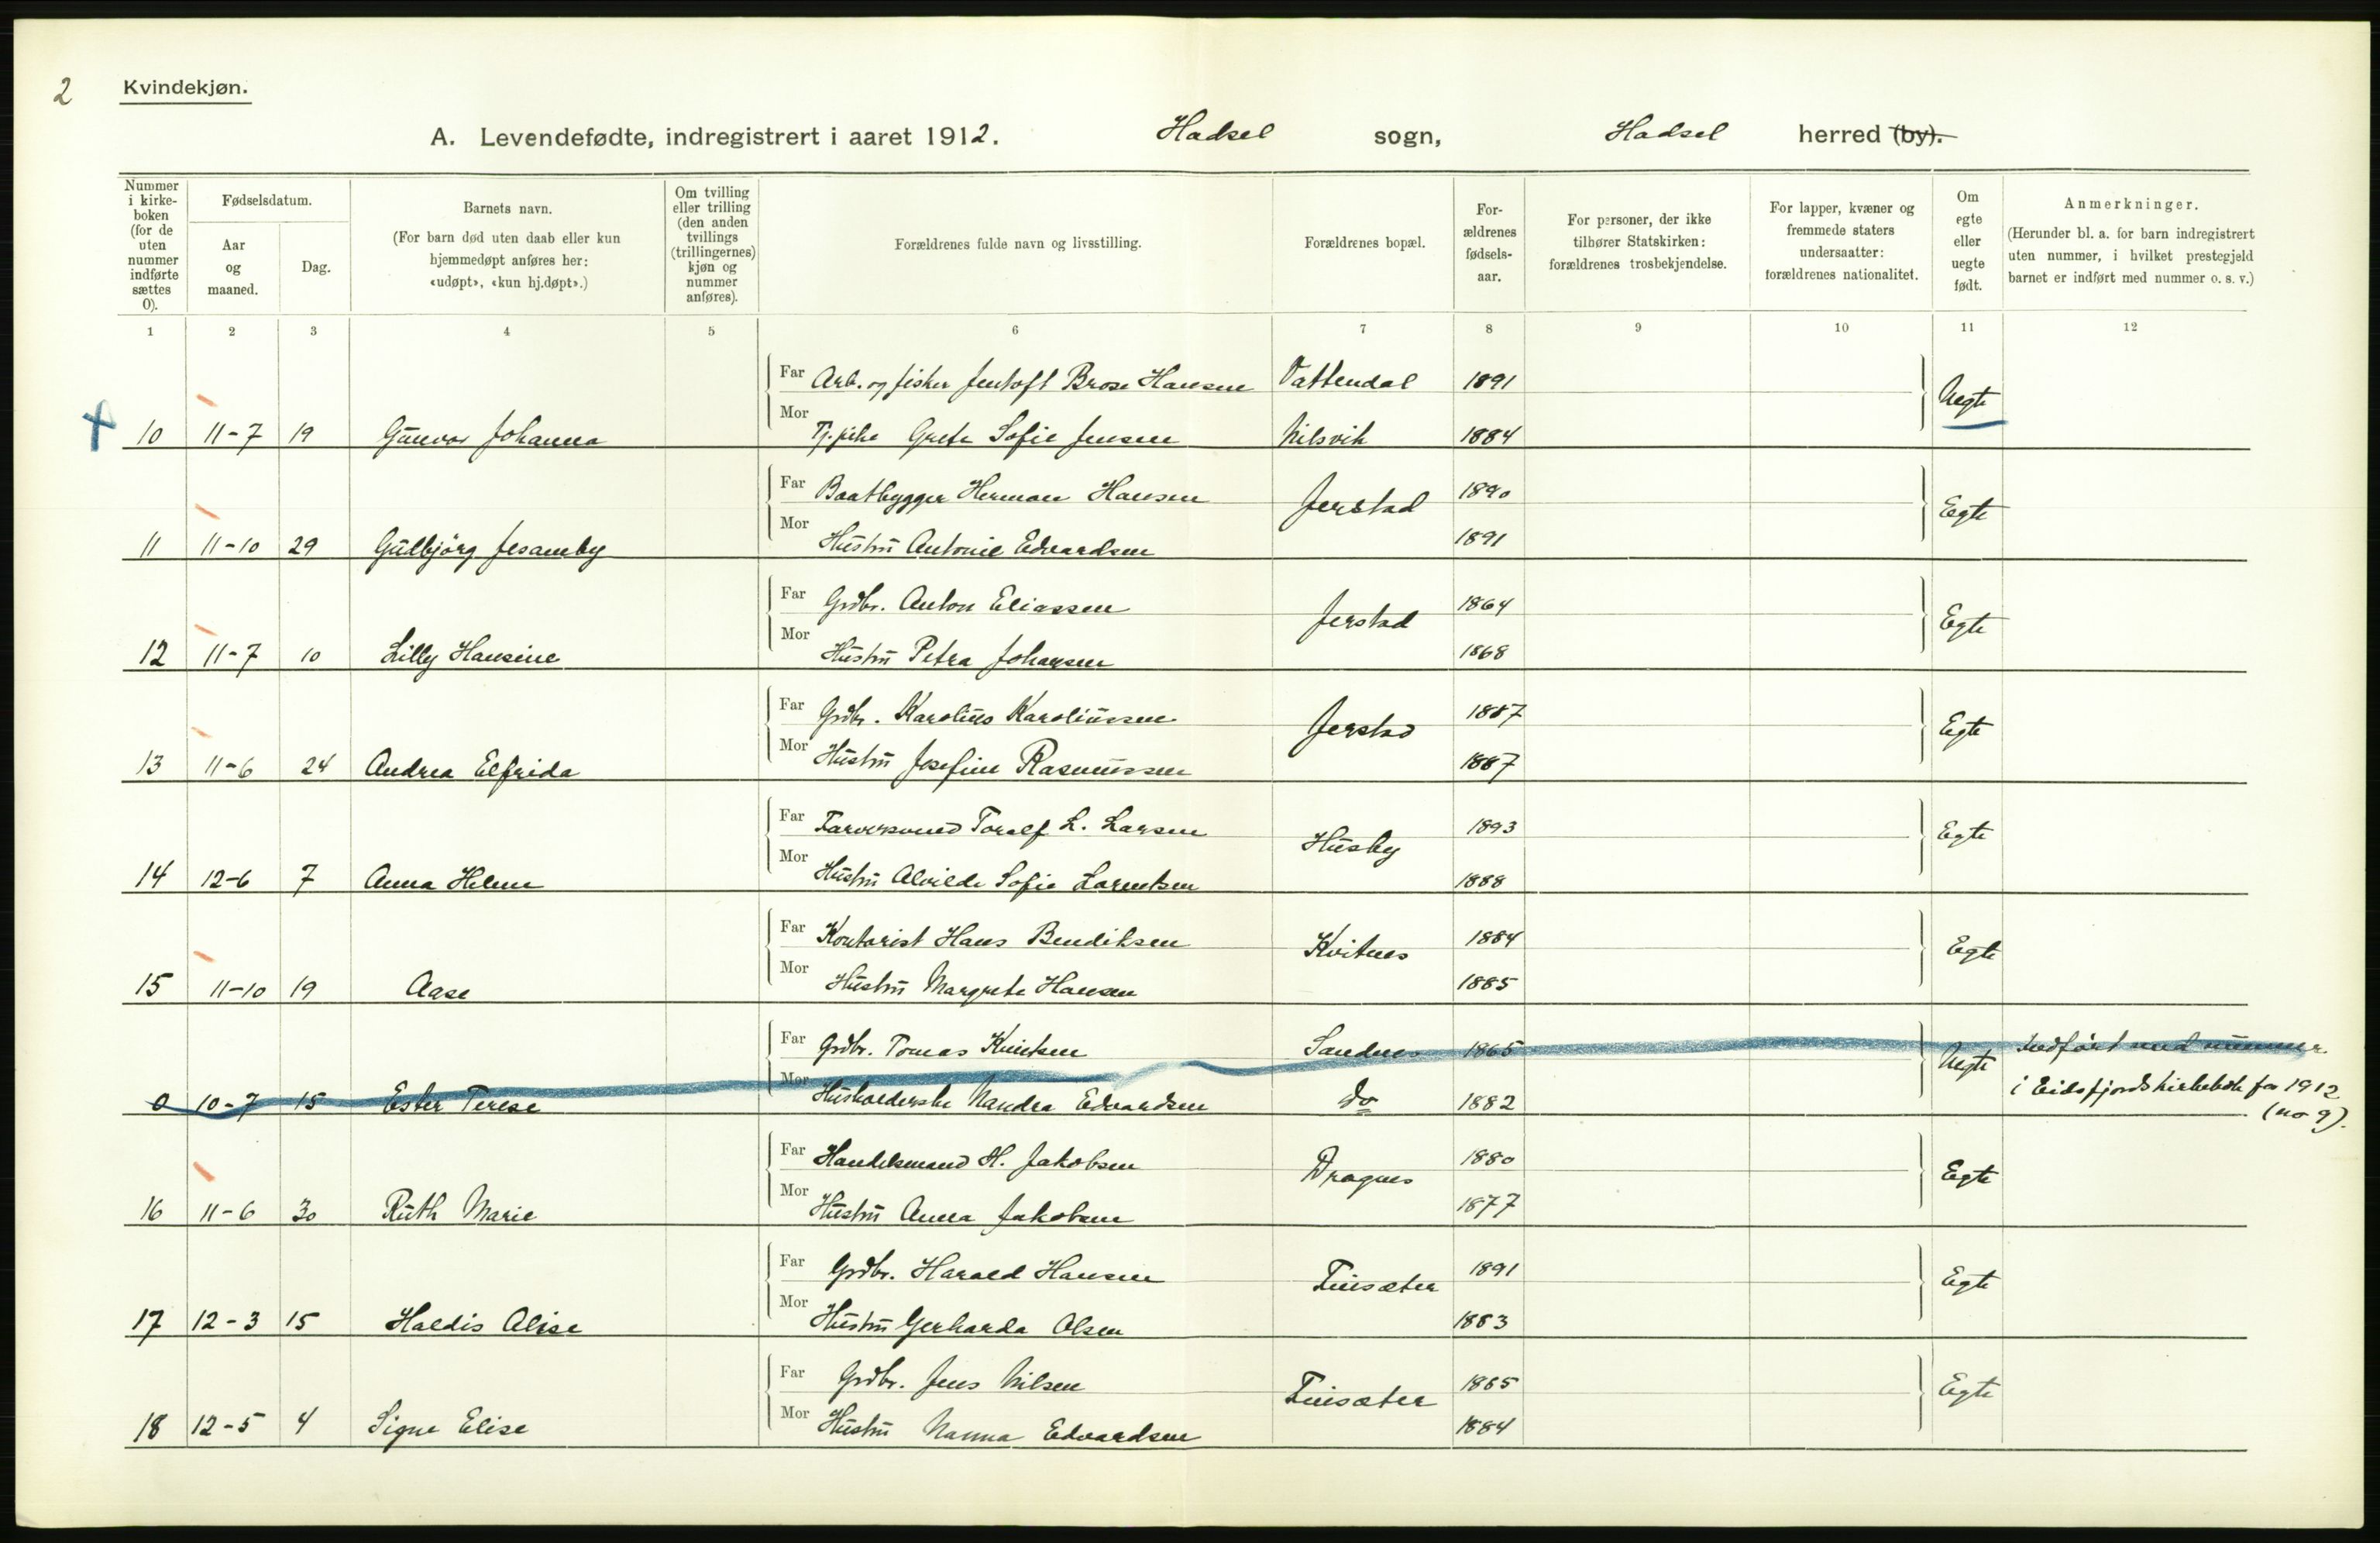 2
Kvindekjøn.
A. Levendefødte, indregistrert i aaret 1912. Hadsel sogn, Hadsel herred (by).
Nummer i kirke-boken (for de uten nummer indførte sættes 0).
Fødselsdatum.
Aar og maaned.
Dag.
Barnets navn.
(For barn død uten daab eller kun hjemmedøpt anføres her: «udøpt», «kun hj.døpt».)
Om tvilling eller trilling (den anden tvillings (trillingernes) kjøn og nummer anføres).
Forældrenes fulde navn og livsstilling.
Forældrenes bopæl.
For-ældrenes fødsels-aar.
For personer, der ikke tilhører Statskirken: forældrenes trosbekjendelse.
For lapper, kvæner og fremmede staters undersaatter: forældrenes nationalitet.
Om egte eller uegte født.
Anmerkninger.
(Herunder bl. a. for barn indregistrert uten nummer, i hvilket prestegjeld barnet er indført med nummer o. s. v.)
1 2 3 4 5 6 7 8 9 10 11 12
Far Arb. og fisker Jentoft Brose Hansen Vattendal 1891 Uegte
10 11-7 19 Gunvor Johanna Mor Tj.pike Grete Sofie Jensen Nilsvik 1884
Far Baatbygger Herman Hansen Jerstad 1890 Egte
11 11-10 29 Gudbjörg Jesamby Mor Hustru Antonie Edvardsen 1891
Far Grdbr. Anton Eliassen Jerstad 1864 Egte
12 11-7 10 Lilly Hansine Mor Hustru Petra Johansen 1868
Far Grdbr. Karolius Karoliussen Jerstad 1887 Egte
13 11-6 24 Andrea Elfrida Mor Hustru Josefine Rasmussen 1887
Far Farversvend Toralf L. Larsen Husby 1893 Egte
14 12-6 7 Anna Helene Mor Hustru Alvilde Sofie Lorentsen 1888
Far Kontorist Hans Bendiksen Kvitnes 1884 Egte
15 11-10 19 Aase Mor Hustru Margrete Hansen 1885
Far Grdbr. Tomas Knutsen Sandnes 1865 Uegte Indført med nummer
0 10-7 15 Ester Terese Mor Husholderske Nandra Edvardsen do 1882 i Eidsfjords kirkebok for 1912
(no 9).
Far Handelsmand H. Jakobsen Dragnes 1880 Egte
16 11-6 30 Ruth Marie Mor Hustru Anna Jakobsen 1877
Far Grdbr. Harald Hansen Finsæter 1891 Egte
17 12-3 15 Haldis Alise Mor Hustru Gerharda Olsen 1883
Far Grdbr. Jens Nilsen Finsæter 1865 Egte
18 12-5 4 Signe Elise Mor Hustru Nanna Edvardsen 1884